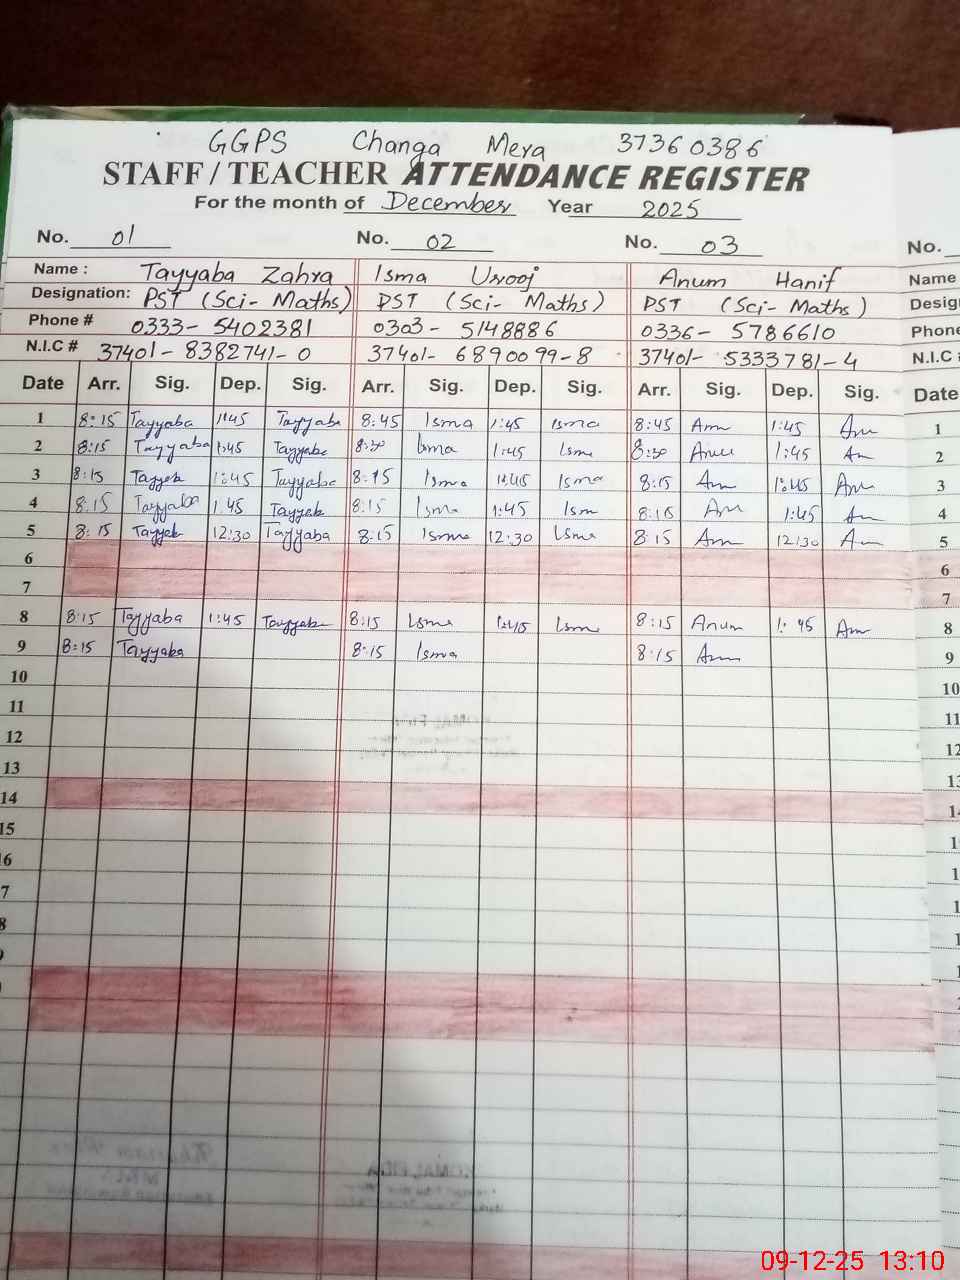 GGPS Changa Mera 37360386
STAFF / TEACHER ATTENDANCE REGISTER
For the month of December Year 2025
No. 01 No. 02 No. 03 No.
Name : Tayyaba Zahra Isma Urooj Anum Hanif Name
Designation: PST (Sci- Maths) PST (Sci- Maths) PST (Sci- Maths) Desig
Phone # 0333- 5402381 0303- 5148886 0336- 5786610 Phone
N.I.C # 37401- 8382741- 0 37401- 6890099-8 37401- 5333781-4 N.I.C
Date Arr. Sig. Dep. Sig. Arr. Sig. Dep. Sig. Arr. Sig. Dep. Sig. Date
1 8:15 Tayyaba 1:45 Tayyaba 8:45 Isma 1:45 Isma 8:45 Anm 1:45 Anm 1
2 8:15 Tayyaba 1:45 Tayyaba 8:30 Isma 1:45 Isma 8:30 Anum 1:45 An 2
3 8:15 Tayyab 1:45 Tayyaba 8:15 Isma 1:45 Isma 8:15 Anm 1:45 Anm 3
4 8:15 Tayyaba 1:45 Tayyab 8:15 Isma 1:45 Ism 8:15 Am 1:45 An 4
5 8:15 Tayyab 12:30 Tayyaba 8:15 Isma 12:30 Isma 8:15 Anm 12:30 An 5
6 6
7 7
8 8:15 Tayyaba 1:45 Tayyab 8:15 Isma 1:45 Isma 8:15 Anum 1:45 Anm 8
9 8:15 Tayyaba 8:15 Isma 8:15 Anm 9
10 10
11 11
12 12
13 13
14 14
15
16
7
8
09-12-25 13:10